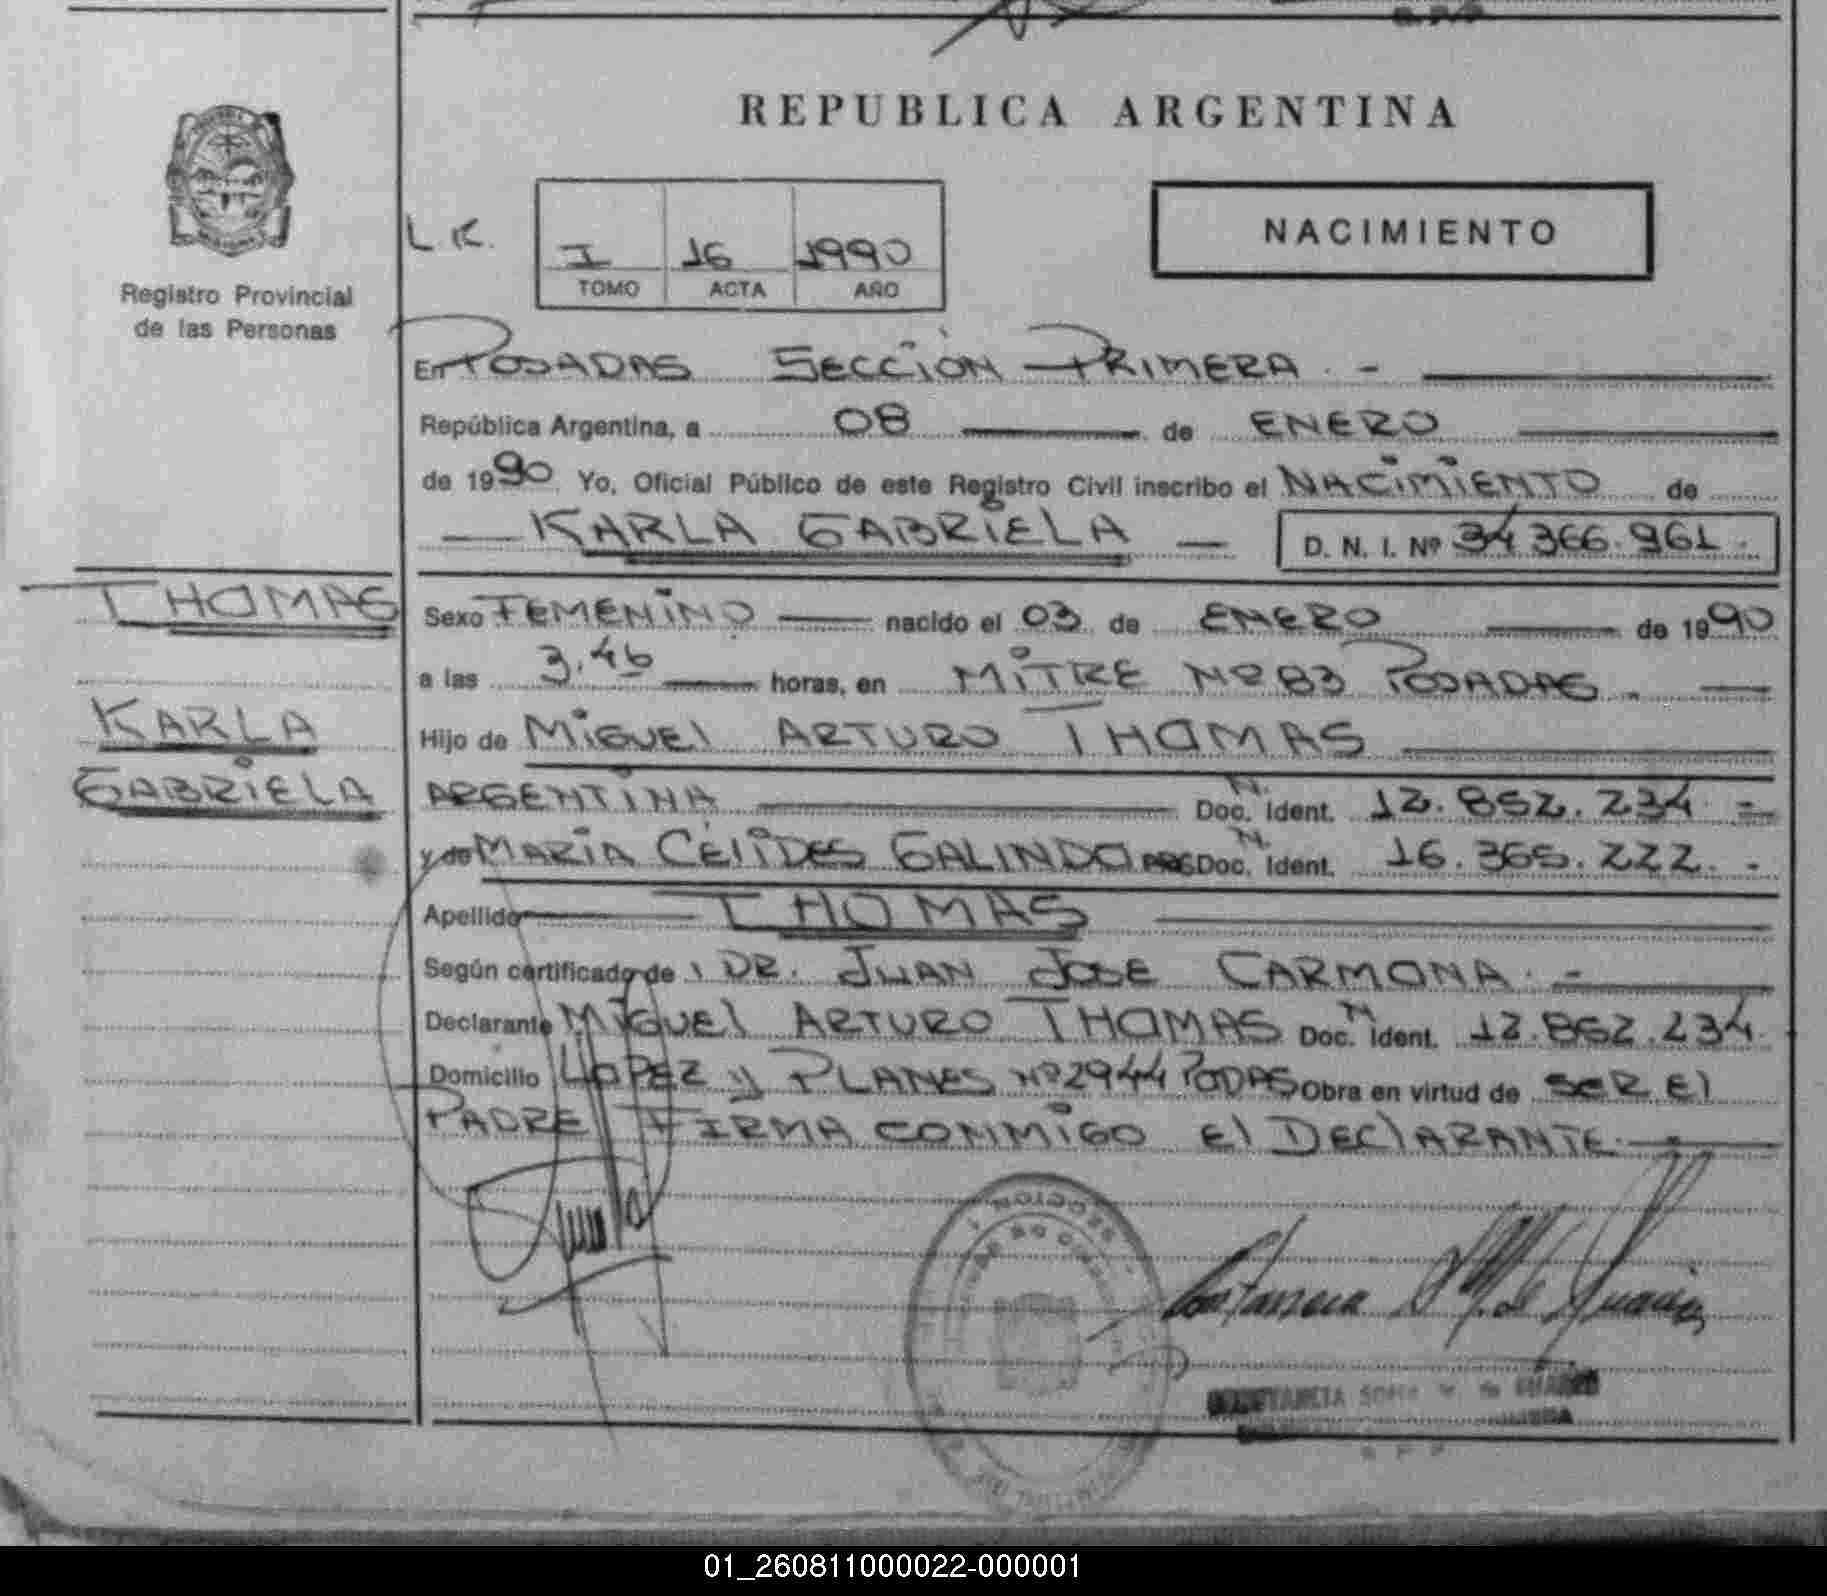 REPUBLICA ARGENTINA
NACIMIENTO
L.R.
I 16 1990
TOMO ACTA AÑO
Registro Provincial
de las Personas
En POSADAS SECCIÓN PRIMERA . -
República Argentina, a 08 de ENERO
de 1990 Yo, Oficial Público de este Registro Civil inscribo el NACIMIENTO de
KARLA GABRIELA D. N. I. Nº 34 366.961
THOMAS
KARLA
GABRIELA
Sexo FEMENINO nacido el 03 de ENERO de 1990
a las 3.46 horas, en MITRE Nº 83 POSADAS.
Hijo de MIGUEL ARTURO THOMAS
ARGENTINA Doc. N. Ident. 12.852.234
y de MARIA CELIDES GALINDO ARG Doc. N. Ident. 16.365.222. -
Apellido THOMAS
Según certificado de DR. JUAN JOSE CARMONA. -
Declarante MIGUEL ARTURO THOMAS Doc. N Ident. 12.852.234.
Domicilio LOPEZ y PLANES Nº 2944 PODAS Obra en virtud de SER El
PADRE FIRMA CONMIGO El DEClARANTE. -
SECCION 1
01_260811000022-000001